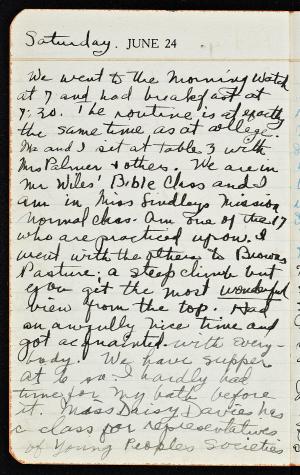 Saturday. JUNE 24
We went to the Morning Watch
at 7 and had breakfast at
7:30. The routine is at exactly
the same time as at college.
Mc and I sit at table 3 with
Mrs Palmer & others. We are in
Mr Wiles' Bible Class and I
am in Miss Lindley's Mission
Normal Class. Am one of the 17
who are practiced upon. I
went with the others to Browns
Pasture; a steep climb but
you get the most wonderful
view from the top. Had
an awfully nice time and
got acquainted with every-
body. We have supper
at 6 so I hardly had
time for my bath before
it. Miss Daisy Davies has
a class for representatives
of Young Peoples Societies